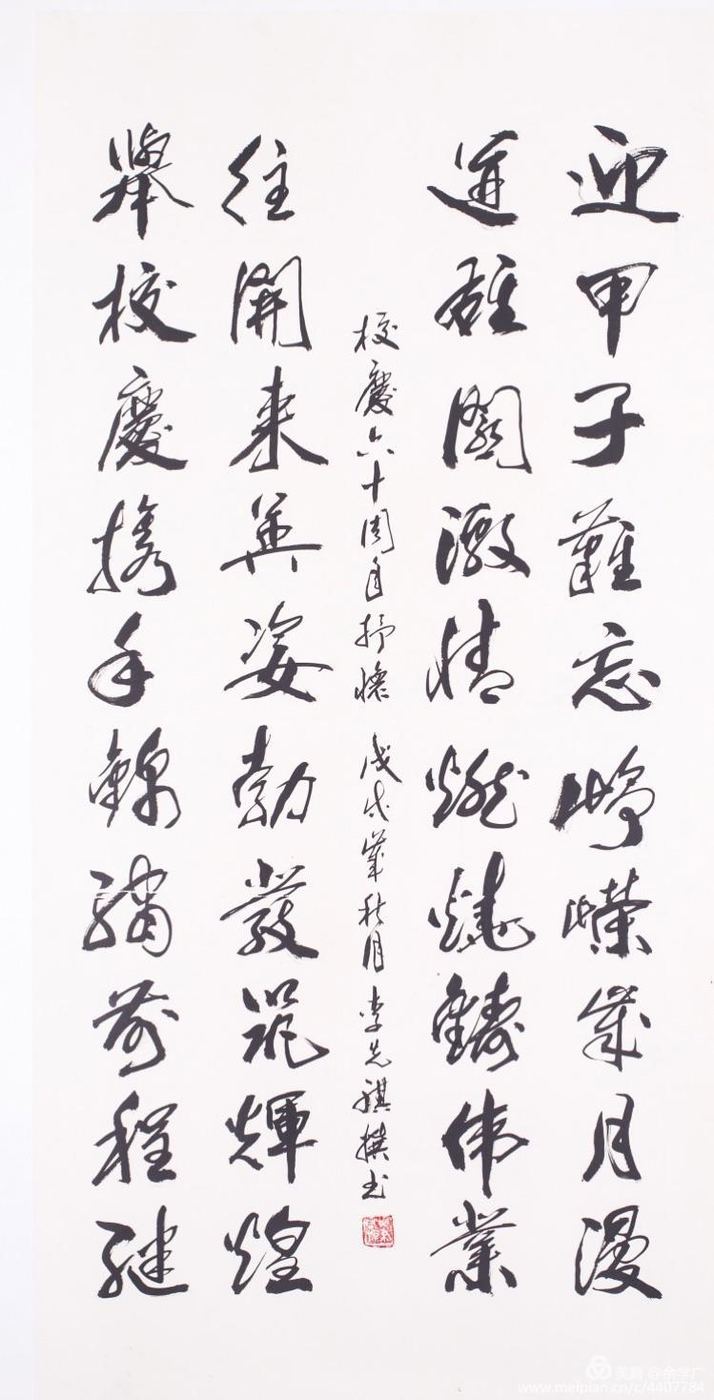 迎甲子難忘崢嶸歲月漫
道雄關激情燃燒鑄伟業
舉校慶攜手錦繡前程繼
往開來英姿勃發輝煌
校慶六十周年抒懷 戊戌歲秋月 李先祺撰书
美篇 @余学广
www.meipian.cn/c/4407784